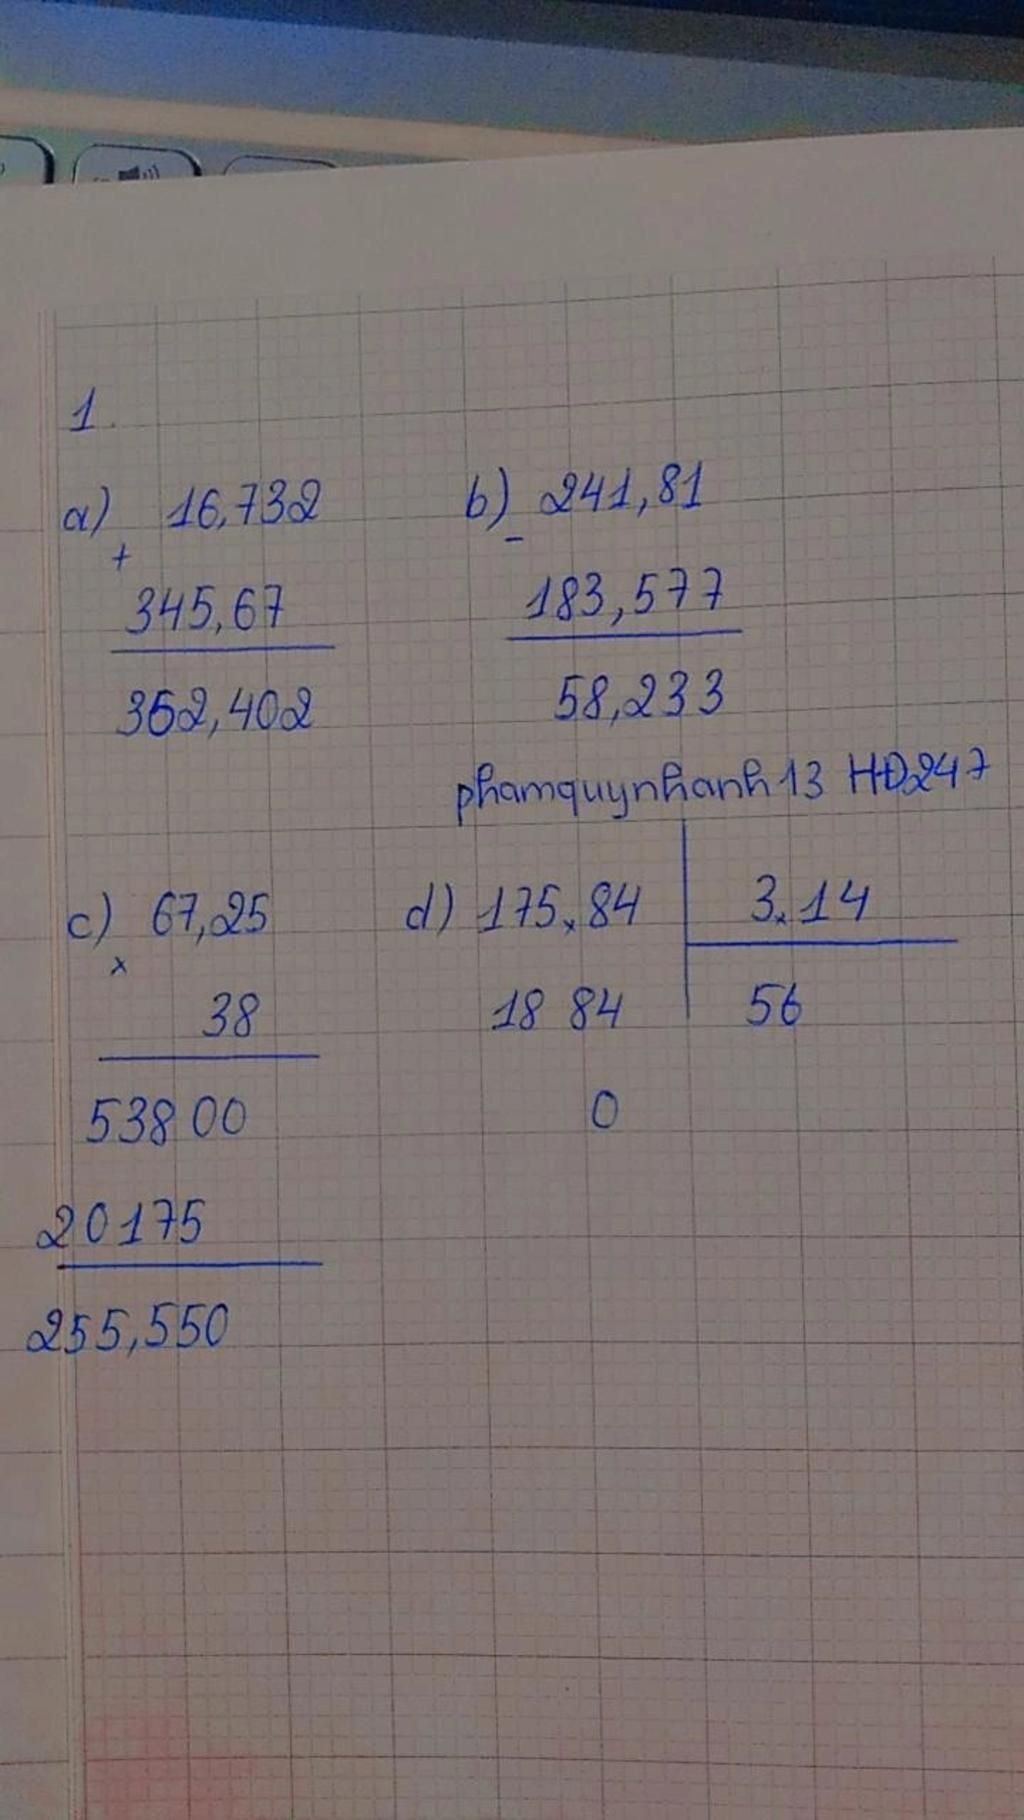 1.
a) 16,732
+
345,67
362,402
b) 241,81
-
183,577
58,233
phamquynhanh13 HĐ247
c) 67,25
x
38
53800
20175
255,550
d) 175,84 3,14
18 84 56
0